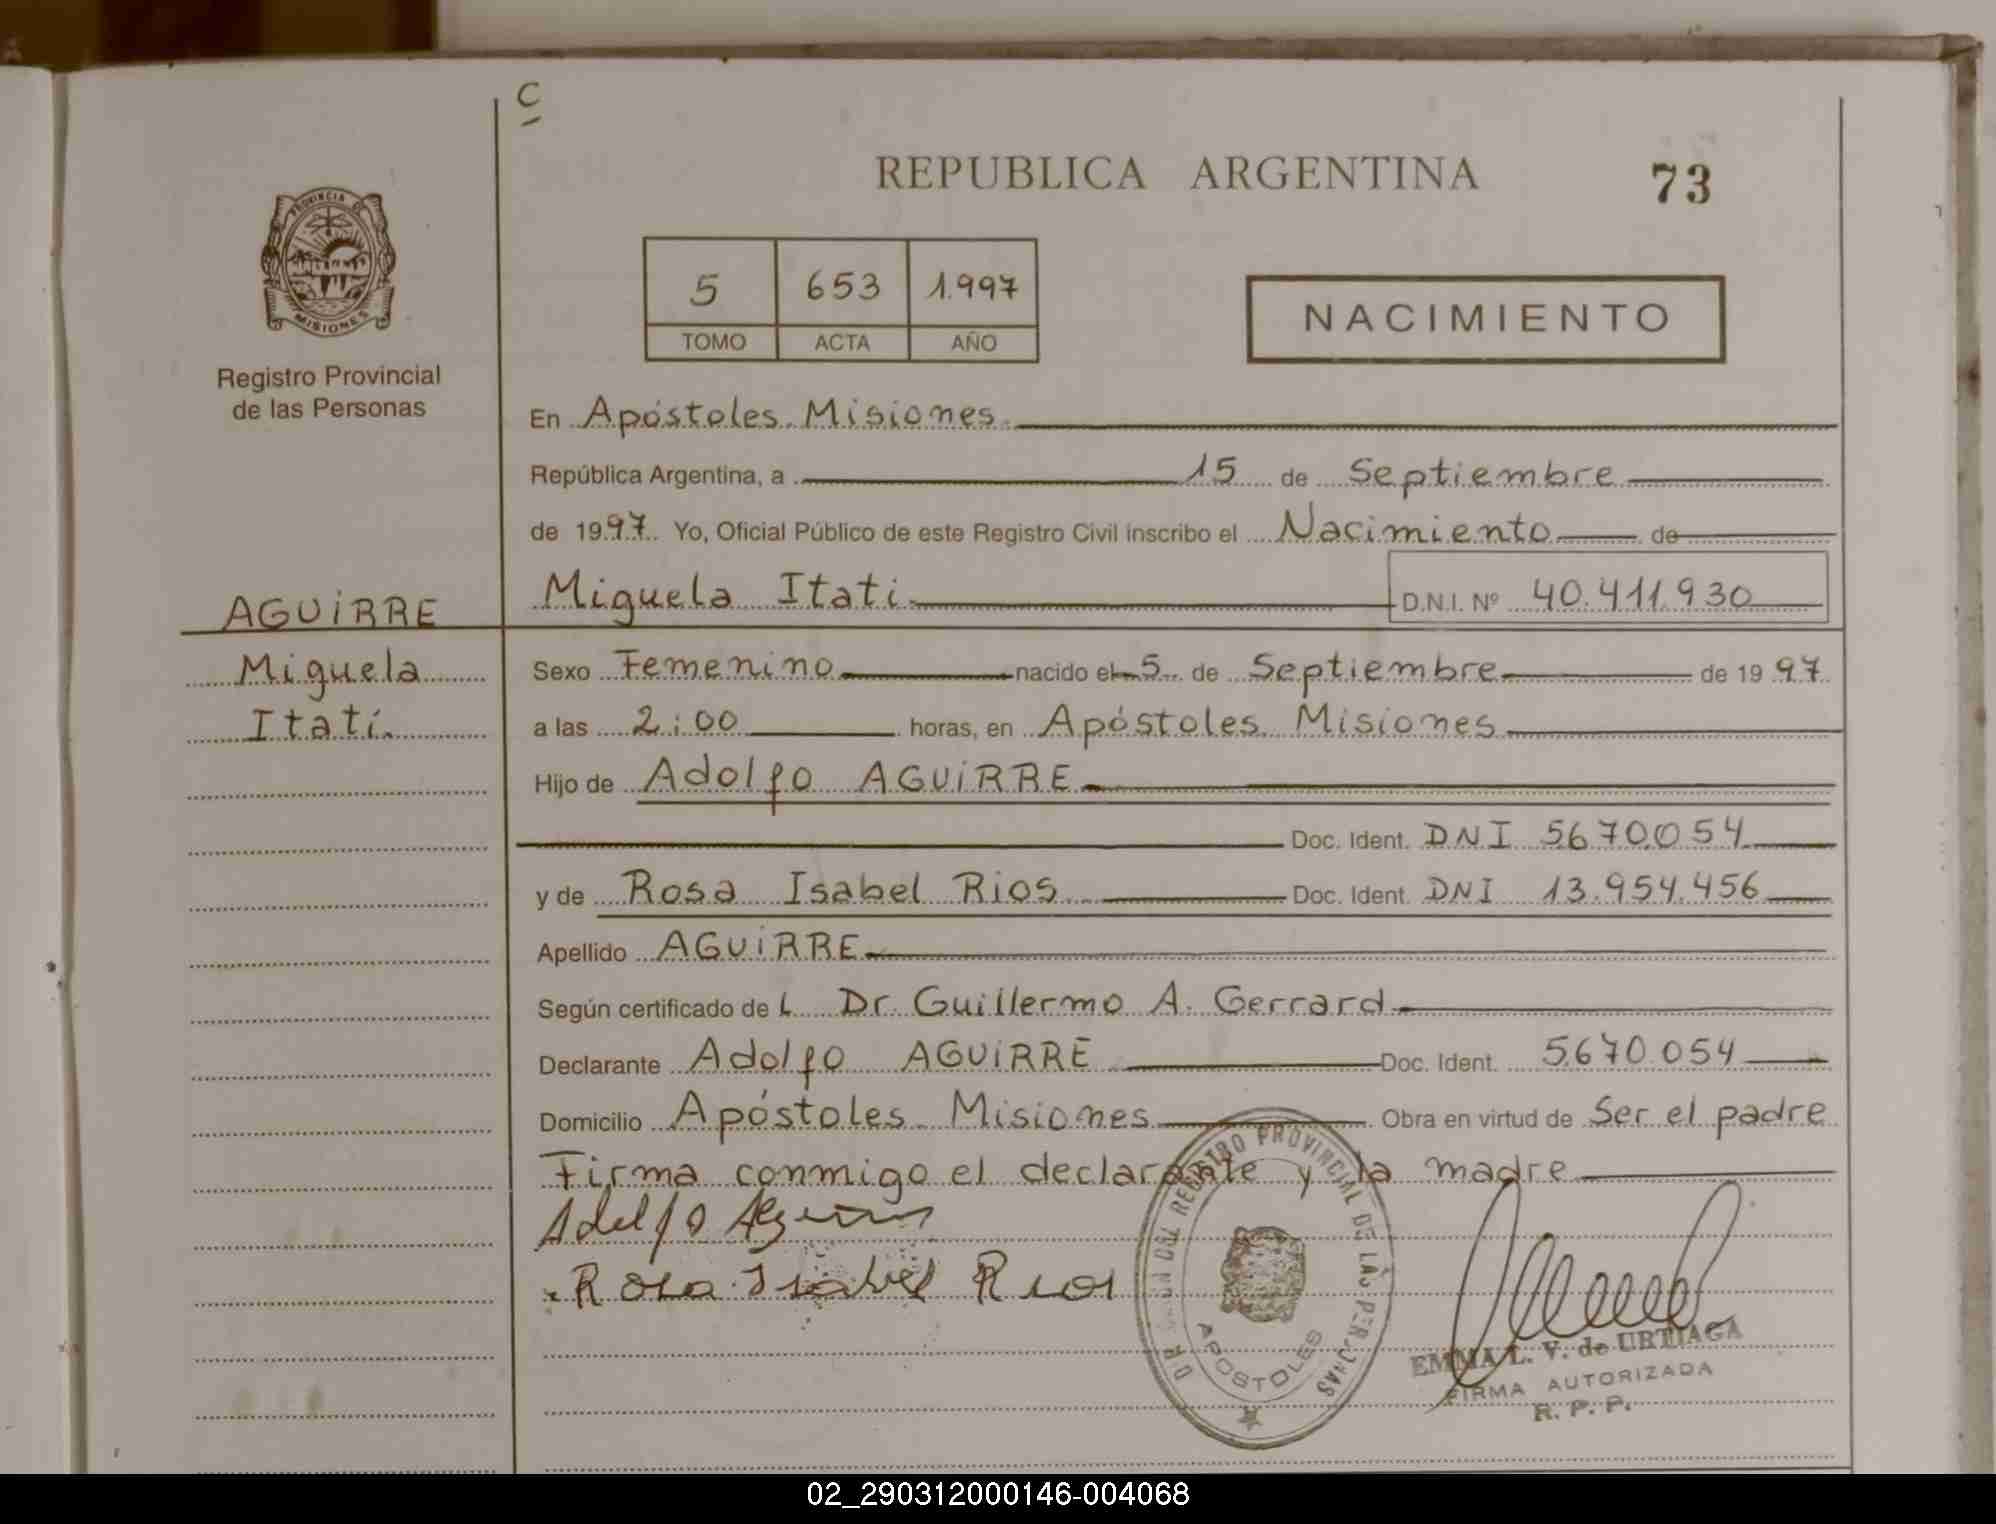 C
REPUBLICA ARGENTINA
73
PROVINCIA DE
MISIONES
Registro Provincial
de las Personas
5 653 1.997
TOMO ACTA AÑO
NACIMIENTO
En Apóstoles. Misiones.
República Argentina, a 15 de Septiembre
de 1997. Yo, Oficial Público de este Registro Civil inscribo el Nacimiento de
AGUiRRE
Miguela Itati D.N.I. Nº 40.411.930
Miguela
Itatí.
Sexo Femenino nacido el 5 de Septiembre de 1997
a las 2:00 horas, en Apóstoles. Misiones
Hijo de Adolfo AGUiRRE
Doc. Ident. DNI 5670.054
y de Rosa Isabel Rios Doc. Ident. DNI 13.954.456
Apellido AGUiRRE
Según certificado de L Dr. Guillermo A. Gerrard
Declarante Adolfo AGUiRRE Doc. Ident. 5.670.054
Domicilio Apóstoles. Misiones Obra en virtud de Ser el padre
Firma conmigo el declarante y la madre
Adolfo Aguirre
Rosa Isabel Rios
DEL REGISTRO PROVINCIAL DE LAS PERSONAS
APOSTOLES
EMMA L. V. de URTIAGA
FIRMA AUTORIZADA
R. P. P.
02_290312000146-004068